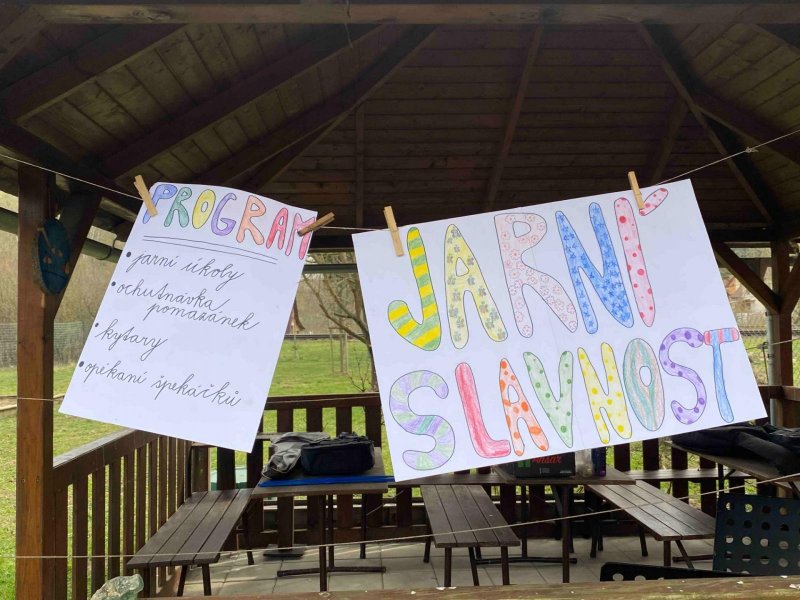 PROGRAM
• jarní úkoly
• ochutnávka
pomazánek
• kytary
• opékaní špekáčků
JARNÍ
SLAVNOST